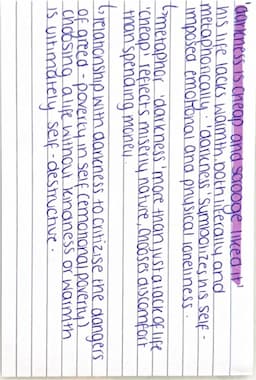 'darkness is cheap and scrooge liked it'
his life lacks warmth both literally and
metaphorically. 'darkness' symbolizes his self-
imposed emotional and physical loneliness.
↳ metaphor 'darkness' more than just a lack of life
'cheap' reflects miserly nature, chooses discomfort
than spending money.
↳ relationship with darkness to critizise the dangers
of greed - poverty in self (emotional poverty)
choosing a life without kindness or warmth
is ultimately self-destructive.